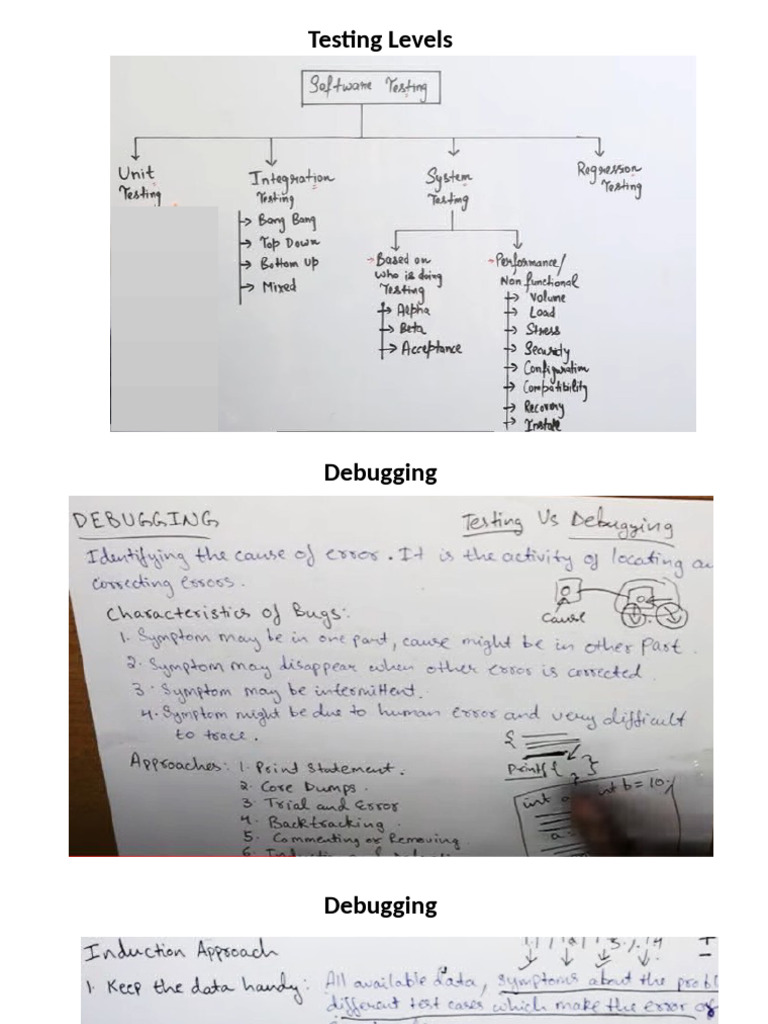 Testing Levels
Software Testing
Unit
Testing
Integration
Testing
Bang Bang
Top Down
Bottom Up
Mixed
System
Testing
Based on
who is doing
Testing
Alpha
Beta
Acceptance
Performance/
Non functional
Volume
Load
Stress
Security
Configuration
Compatibility
Recovery
Install
Regression
Testing
Debugging
DEBUGGING
Testing Vs Debugging
Identifying the cause of error. It is the activity of locating
correcting errors.
Cause
Characteristics of Bugs:
1. Symptom may be in one part, cause might be in other part.
2. Symptom may disappear when other error is corrected.
3. Symptom may be intermittent.
4. Symptom might be due to human error and very difficult
to trace.
Approaches: 1. Print Statement.
2. Core Dumps.
3. Trial and Error
4. Backtracking.
5. Commenting or Removing
6.
printf(
int
int b = 10;
a
Debugging
Induction Approach
1. Keep the data handy: All available data, symptoms about the
different test cases which make the error